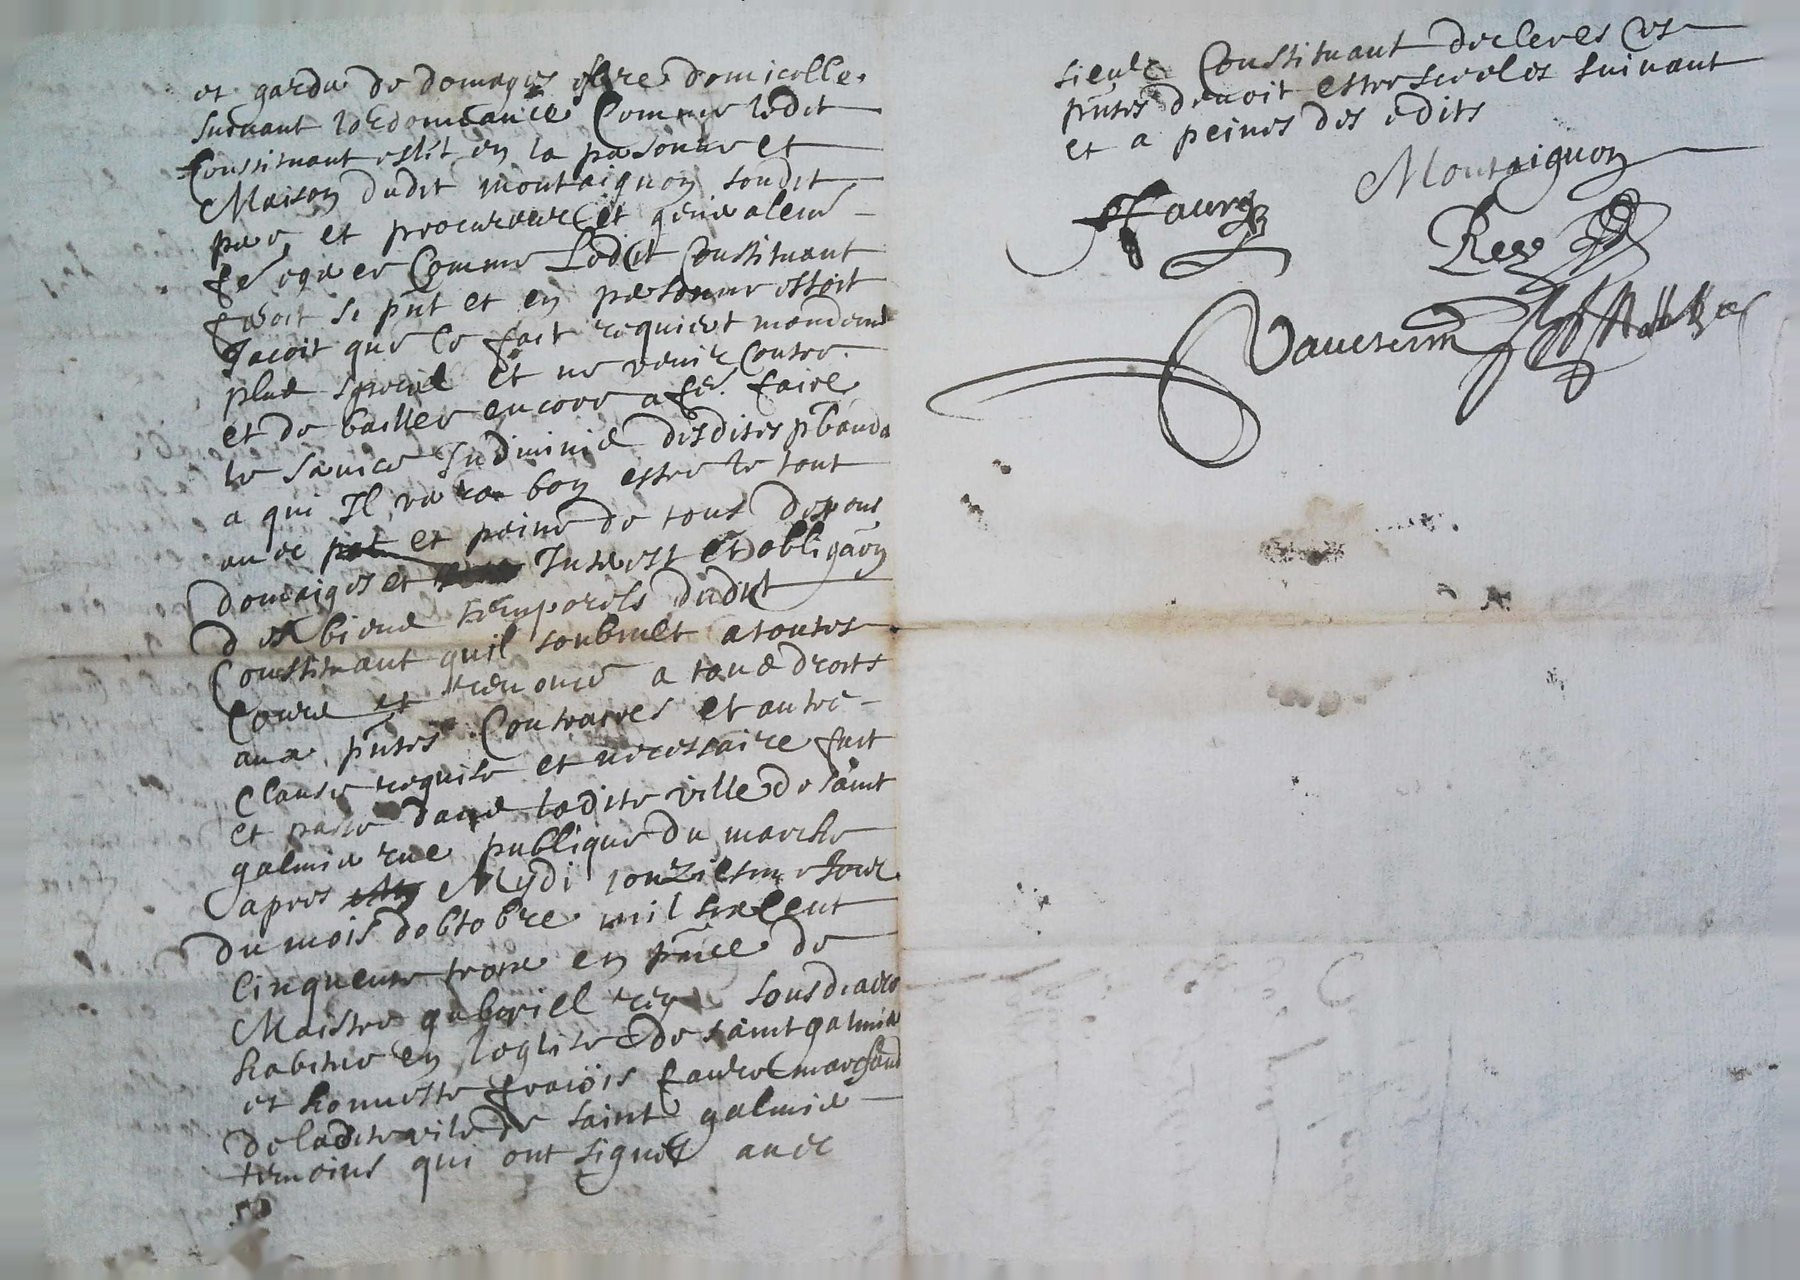 et garde de domages eslire domicelle
suivant lordonnance Comme ledit
Constituant eslit en la personne et
Maison dudit montaignon sondit
pere et procureur et generalemt
fe Comme Ledit Constituant
feroit si pnt et en personne estoit
Jacoit que le fait requiert mandemt
plus special et ne venir Contre
et de bailler encore a fe. faire
le service desdites pbandes
a qui Il bon estre le tout
avec et peine de tous despens
domaiges et Interest et obligaon
des biens temporels dudit
Constituant quil soubmet a toutes
Cours et renonce a tous droits
aux pntes Contraires et autre
Clause requise et necessaire fait
et passe dans ladite ville de saint
galmie rue publique du marche
apres Mydi jour
du mois dobtobre mil six Cent
Cinquente trois en pnce de
Maistre gabriell rey sousdiacre
habitue en leglise de saint galmie
et honneste fracois faure marchand
de ladite ville de saint galmie
temoins qui ont signez avec
sieulr Constituant declerer Ces
pntes devoit estre scelles suivant
et a peines des edits
Montaignon
ffaure
Rey